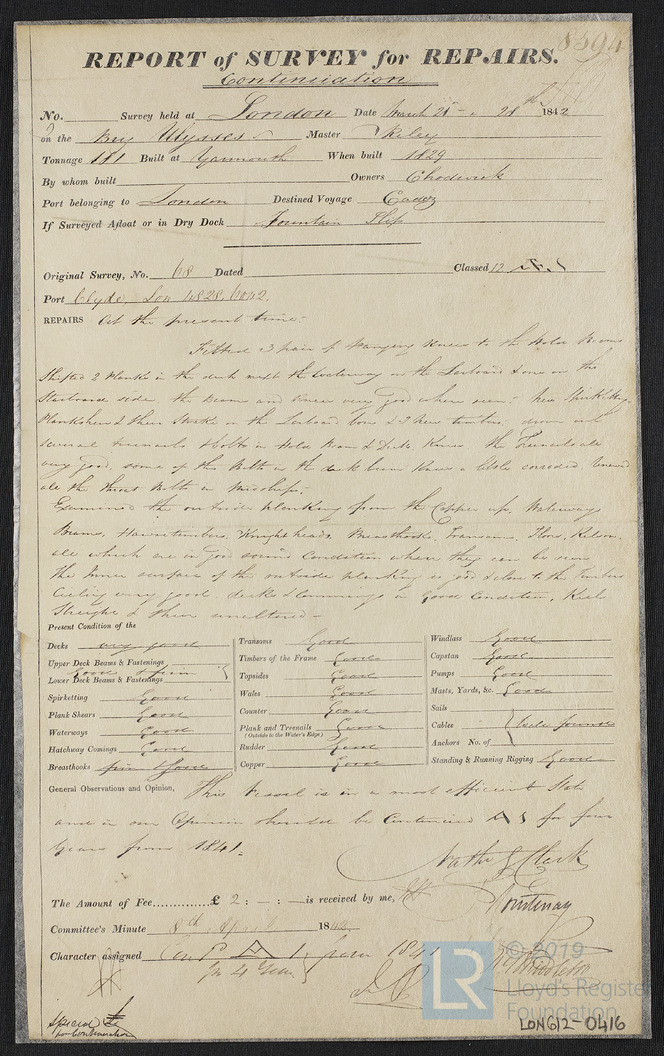 8594
REPORT of SURVEY for REPAIRS.
Continuation
No. Survey held at London Date March 25 - 28th 1842
on the Brig Ulysses Master Riley
Tonnage 181 Built at Yarmouth When built 1829
By whom built Owners Chadwick
Port belonging to London Destined Voyage Cadiz
If Surveyed Afloat or in Dry Dock Fountain Slip
Original Survey, No. 68 Dated Classed 12 A 1
Port Clyde, Lon 4828, 6042.
REPAIRS At the present time.
Fitted 3 pair of Hanging Knees to the Hold Beams
Shifted 2 Planks in the deck next the Waterway on the Larboard & one on the
Starboard side, the Beams and Knees very good where seen. New
Planksheer & Sheer Strake on the Larboard bow & 3 New timbers, driven out
several treenails & bolts in Hold Beam & Deck Knees the Treenails all
very good, some of the Bolts in the deck beam Knees a little corroded, renewed
all the throat bolts in Midships.
Examined the outside planking from the Copper up, Waterways
Beams, Hawsetimbers, Knightheads, Breasthooks, Transoms, Floors, Kelson,
all which are in good sound Condition where they can be seen
The Inner surface of the outside planking is good & clean to the timbers
Ceiling very good, decks & Commings in Good Condition, Keel
Straight & Sheer unaltered -
Present Condition of the
Decks very good
Upper Deck Beams & Fastenings
Lower Deck Beams & Fastenings
Good & firm
Spirketting Good
Plank Shears Good
Waterways Good
Hatchway Comings Good
Breasthooks firm & Good
Transoms Good
Timbers of the Frame Good
Topsides Good
Wales Good
Counter Good
Plank and Treenails Good
(Outside to the Water's Edge)
Rudder Good
Copper Good
Windlass Good
Capstan Good
Pumps Good
Masts, Yards, &c. Good
Sails
Cables
Anchors No. of
Standing & Running Rigging Good
General Observations and Opinion, This Vessel is in a most efficient State
and in our Opinion should be Continued A 1 for four
Years from 1841.
Nathl G Clark
The Amount of Fee............£ 2 : - : - is received by me,
Courtenay
Committee's Minute 8th April 1842.
Character assigned Cond A 1 from 1841
for 4 Years
Middleton
Special
for Continuation
LR © 2019
Lloyd's Register
Foundation
LON612-0416